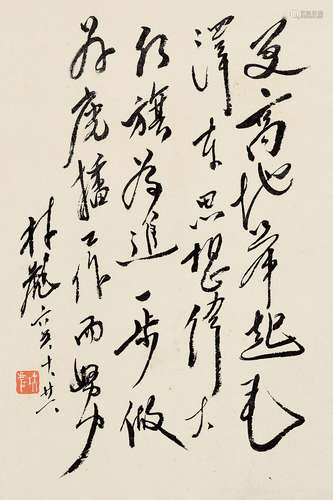 更高地举起毛
泽东思想伟大
红旗为进一步做
好广播工作而努力
林彪 六五、十、廿六